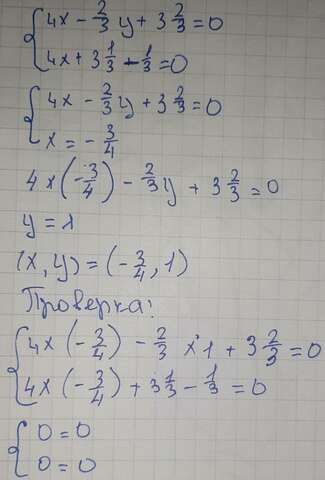 4x - 2/3 y + 3 2/3 = 0
4x + 3 1/3 - 1/3 = 0
4x - 2/3 y + 3 2/3 = 0
x = - 3/4
4 x (- 3/4) - 2/3 y + 3 2/3 = 0
y = 1
(x, y) = (- 3/4, 1)
Проверка:
4 x (- 3/4) - 2/3 x 1 + 3 2/3 = 0
4 x (- 3/4) + 3 1/3 - 1/3 = 0
0 = 0
0 = 0